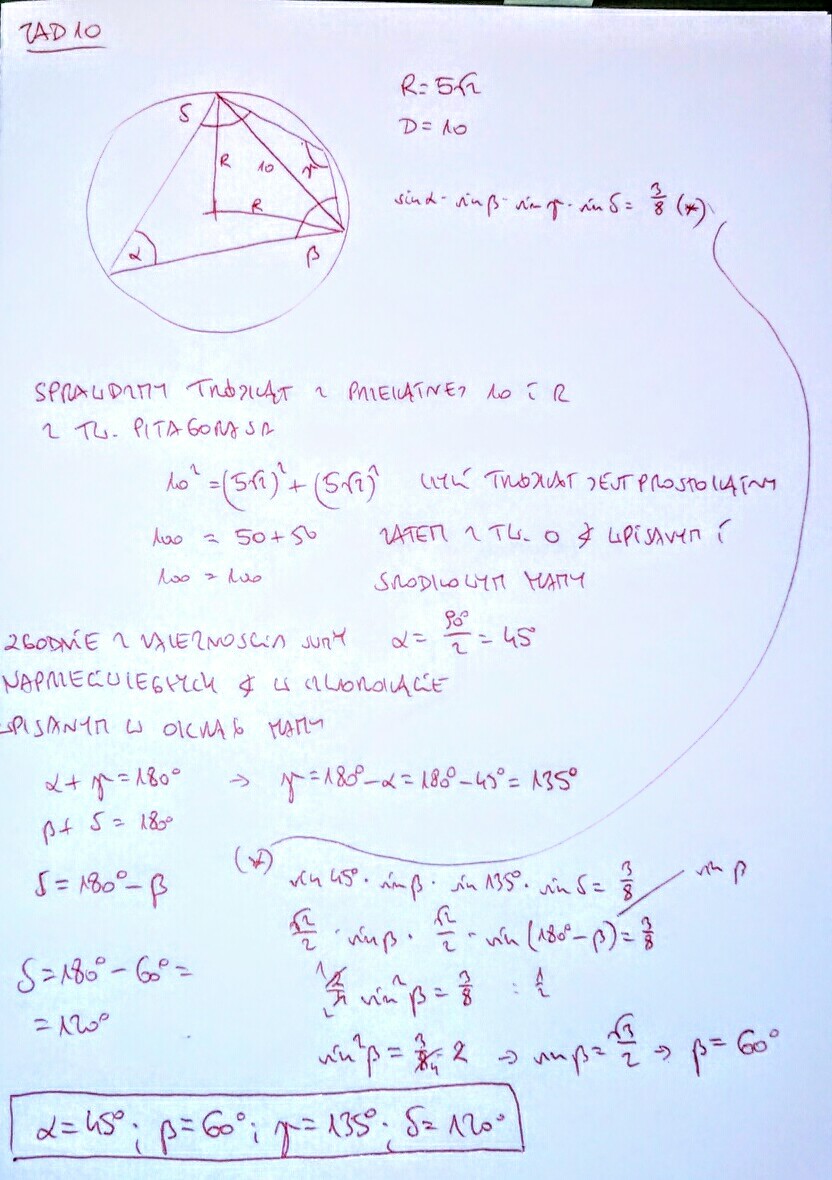 ZAD 10
R = 5√2
D = 10
sin α · sin β · sin γ · sin δ = 3/8 (*)
δ
R
10
γ
R
α
β
SPRAWDZMY TRÓJKĄT Z PRZEKĄTNEJ 10 I R
Z TW. PITAGORASA
10² = (5√2)² + (5√2)² CZYLI TRÓJKĄT JEST PROSTOKĄTNY
100 = 50 + 50 ZATEM Z TW. O ∢ WPISANYM I
100 = 100 ŚRODKOWYM MAMY
ZGODNIE Z SUMY α = 90°/2 = 45°
NAPRZECIWLEGŁYCH ∢ W CZWOROKĄCIE
WPISANYM W OKRĄG MAMY
α + γ = 180° → γ = 180° - α = 180° - 45° = 135°
β + δ = 180°
(*) sin 45° · sin β · sin 135° · sin δ = 3/8 sin β
δ = 180° - β
√2/2 · sin β · √2/2 · sin (180° - β) = 3/8
1 2/4 2 sin² β = 3/8 : 1/2
δ = 180° - 60° =
= 120°
sin² β = 3/8 4 · 2 → sin β = √3/2 → β = 60°
α = 45° ; β = 60° ; γ = 135° ; δ = 120°